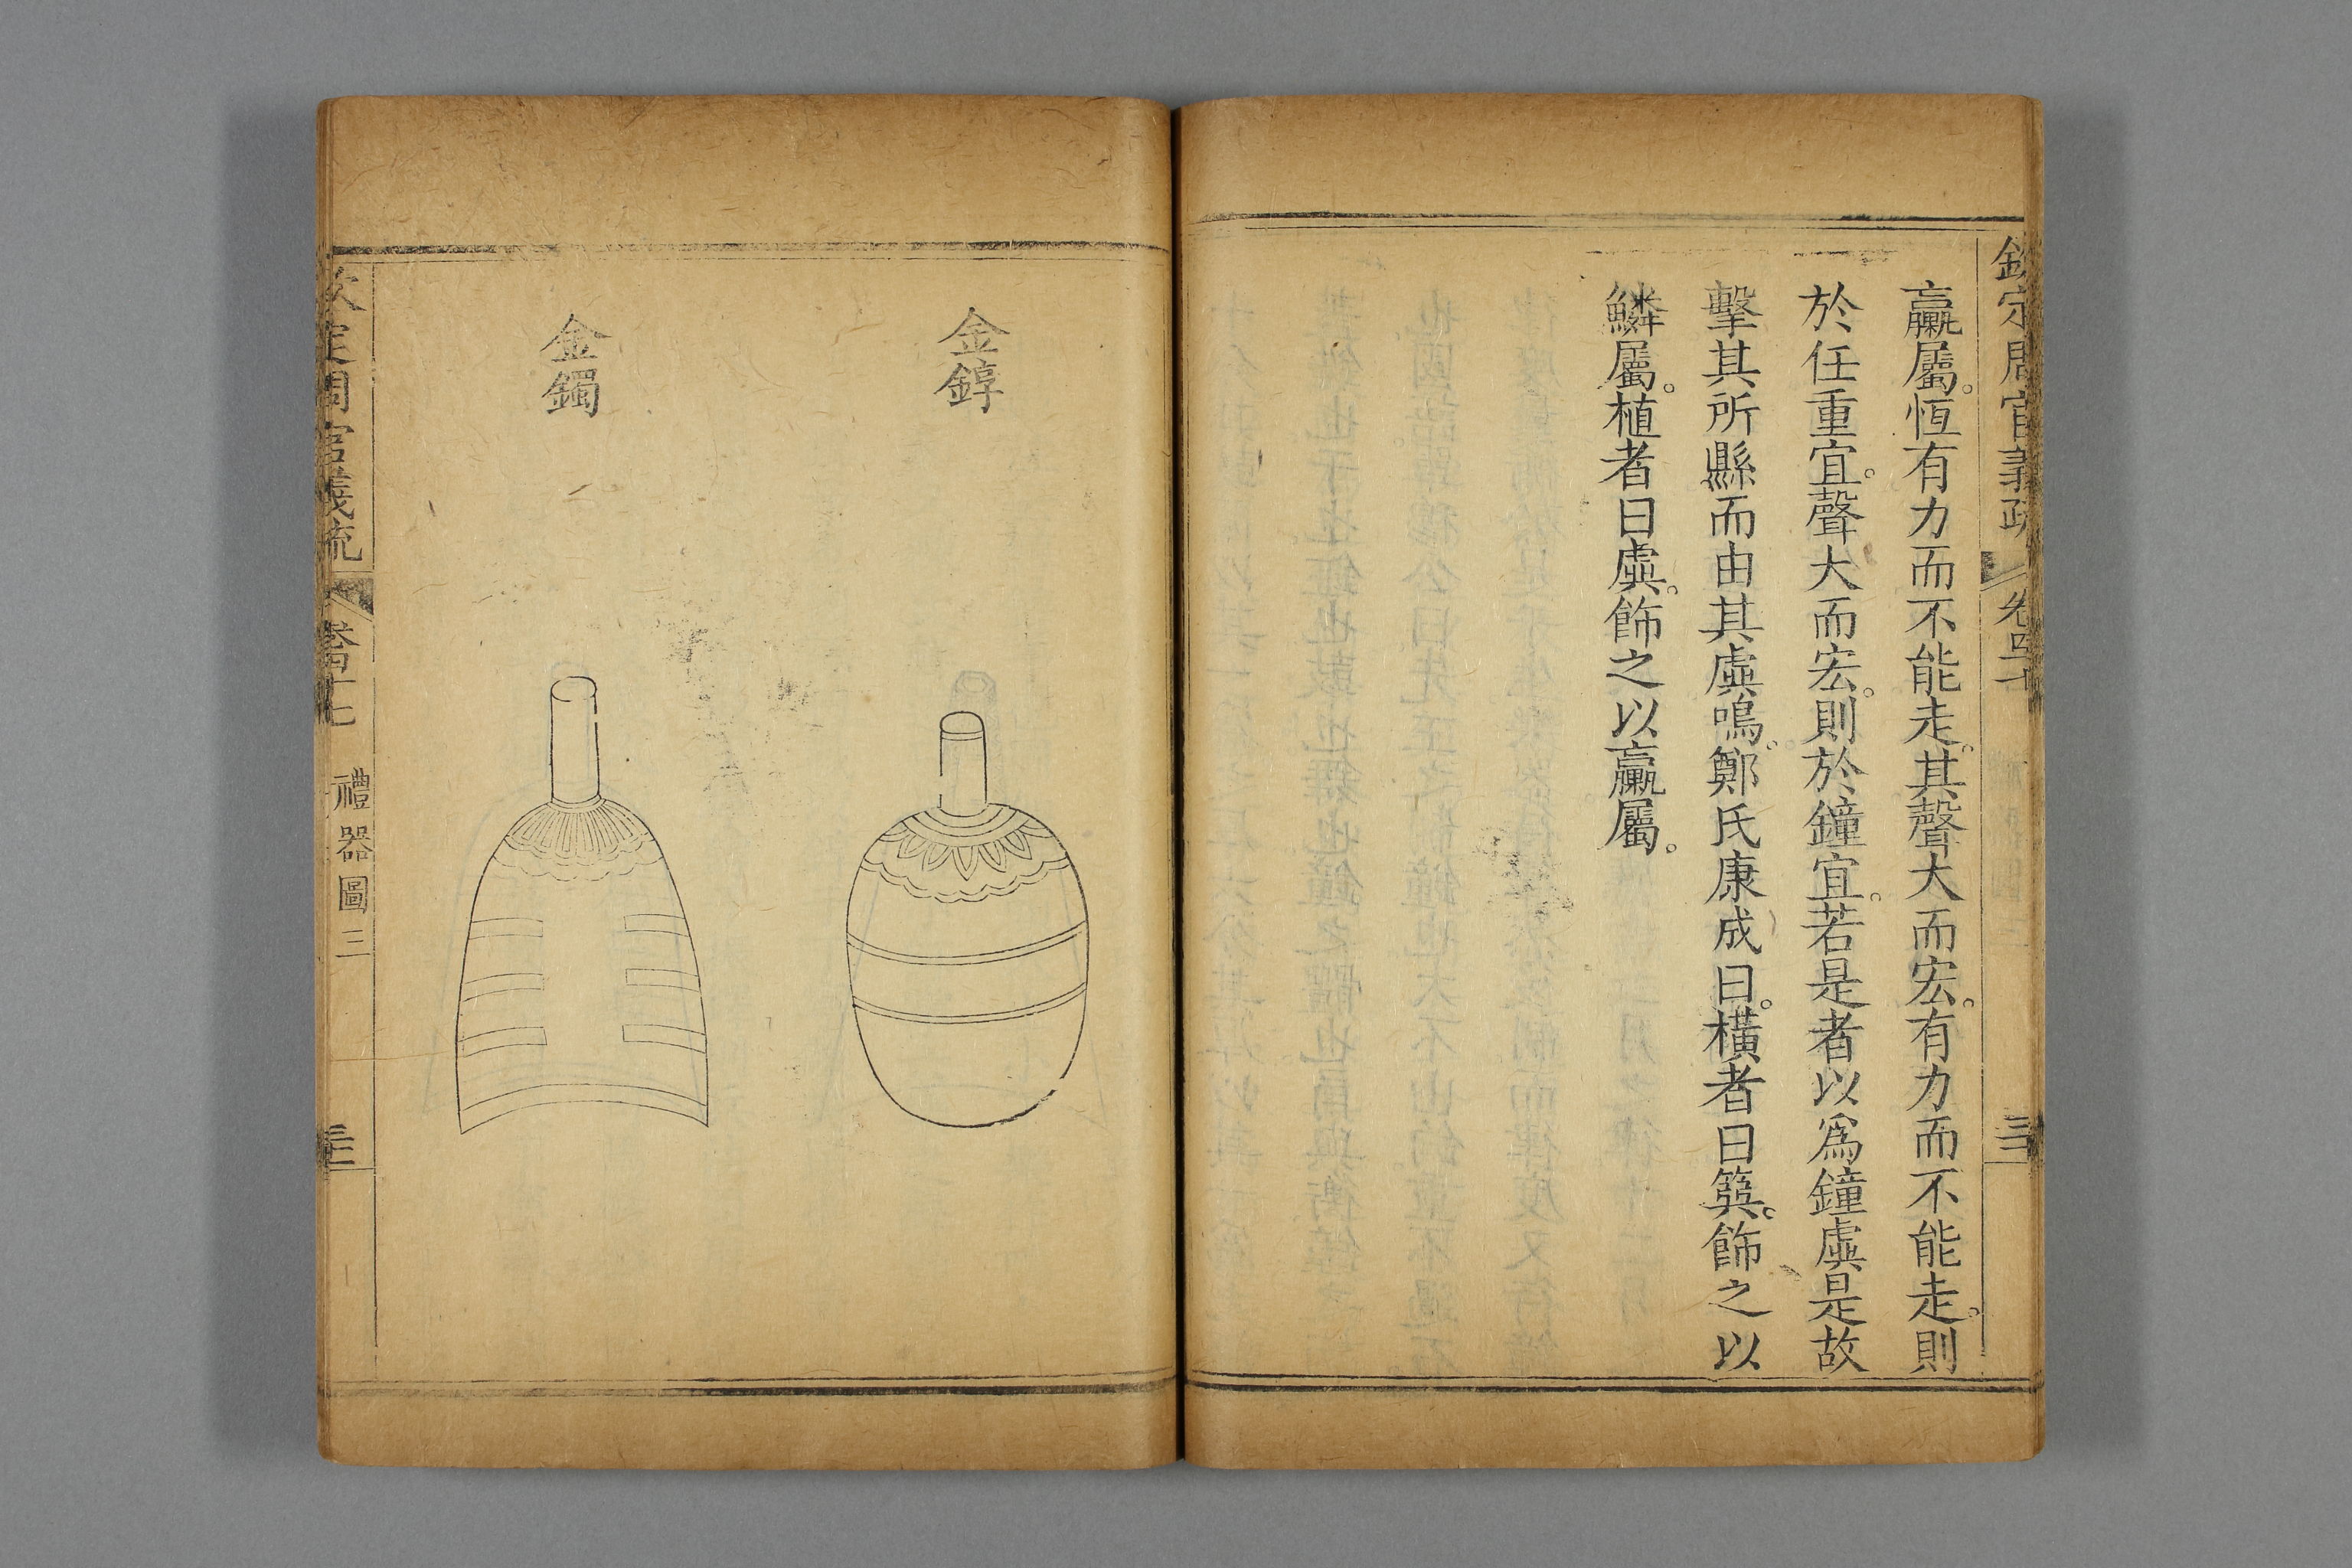 欽定周官義疏 卷四十
羸屬。恆有力而不能走。其聲大而宏。有力而不能走。則
於任重宜。聲大而宏。則於鐘宜。若是者以爲鐘虡是故
擊其所縣而由其虡鳴。鄭氏康成曰。橫者曰簨。飾之以
鱗屬。植者曰虡。飾之以羸屬。
金錞
金鐲
欽定周官義疏 卷四十七 禮器圖三